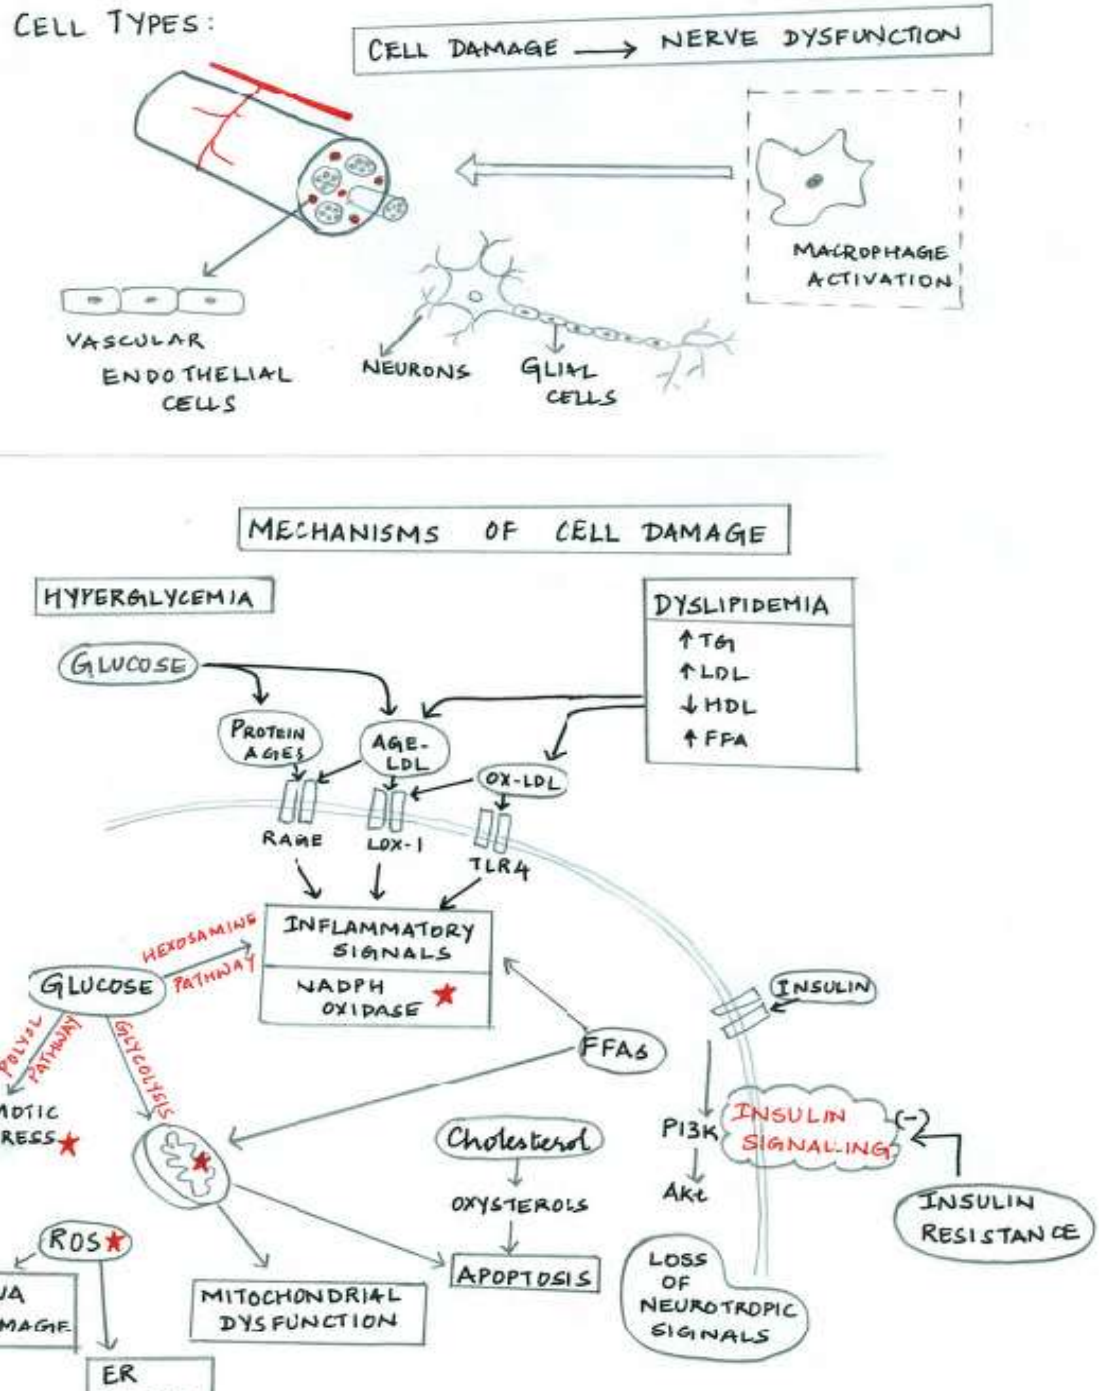 CELL TYPES:
CELL DAMAGE → NERVE DYSFUNCTION
MACROPHAGE
ACTIVATION
VASCULAR
ENDOTHELIAL
CELLS
NEURONS
GLIAL
CELLS
MECHANISMS OF CELL DAMAGE
HYPERGLYCEMIA
DYSLIPIDEMIA
↑ TG
↑ LDL
↓ HDL
↑ FFA
GLUCOSE
PROTEIN
AGES
AGE-
LDL
OX-LDL
RAGE
LOX-1
TLR4
INFLAMMATORY
SIGNALS
NADPH
OXIDASE
HEXOSAMINE
PATHWAY
GLUCOSE
POLYOL
PATHWAY
GLYCOLYSIS
MOTIC
RESS
FFAs
INSULIN
PI3K
Akt
INSULIN
SIGNALLING
(-)
INSULIN
RESISTANCE
Cholesterol
OXYSTEROLS
APOPTOSIS
ROS
NA
MAGE
MITOCHONDRIAL
DYSFUNCTION
ER
LOSS
OF
NEUROTROPIC
SIGNALS